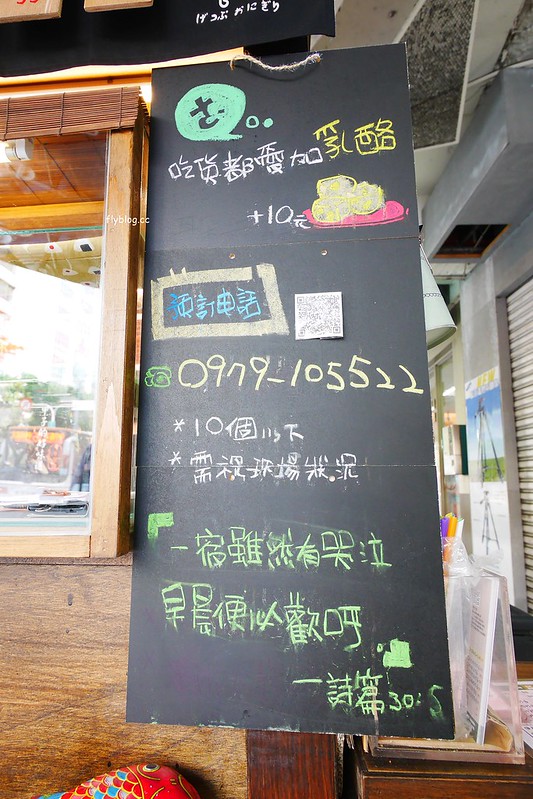 げつぷおにぎり
flyblog.cc
吃貨都需加乳酪
+10元
預訂电話
0979-105522
*10個以下
*需視現場狀況
一宿雖然有哭泣
早晨便必歡呼
一詩篇30:5